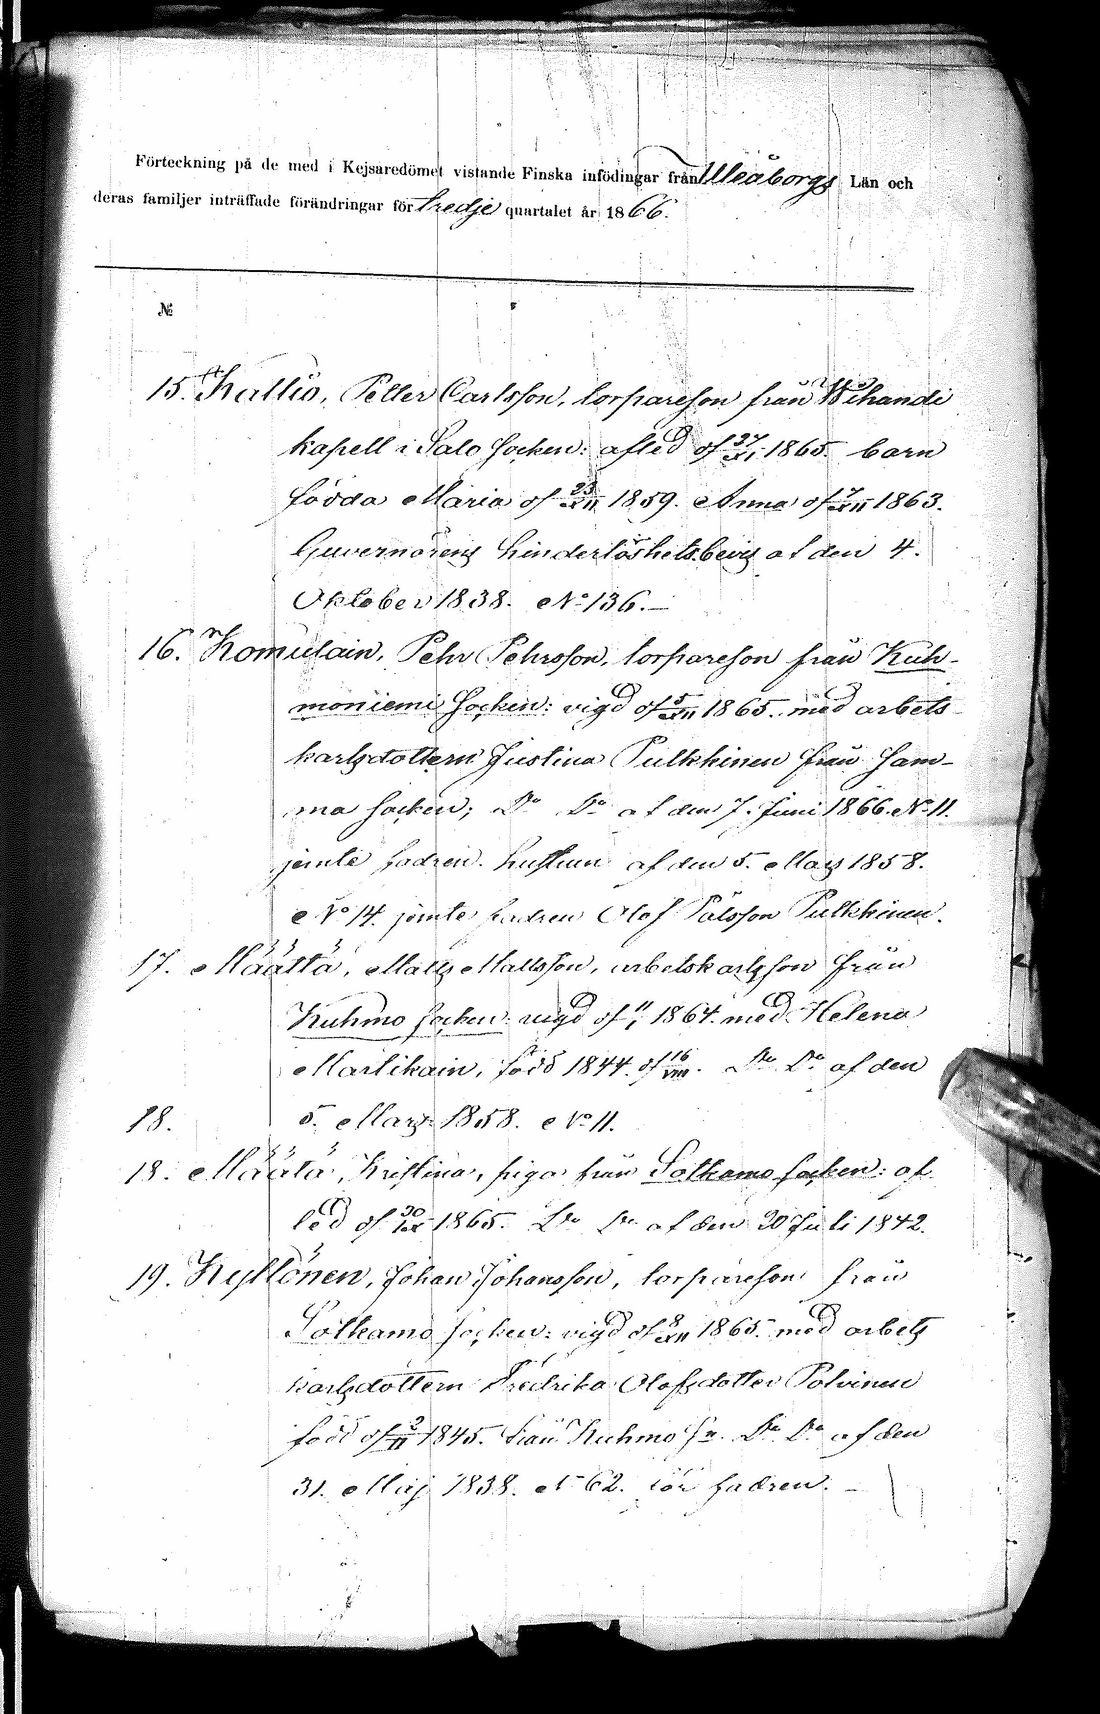 Förteckning på de med i Kejsaredömet vistande Finska infödingar från Uleåborgs Län och
deras familjer inträffade förändringar för tredje quartalet år 1866.
№
15. Kallio, Petter Carlsson, torpareson från Wihandi
kapell i Salo socken: afled 27/XI 1865. barn
födda Maria 23/XII 1859. Anna 7/XII 1863.
Guvernörens hinderlöshetsbevis af den 4.
Oktober 1838. No 136.—
16. Komulain, Pehr Pehrsson, torpareson från Kuh-
moniemi socken: vigd 5/XII 1865. med arbets
karlsdottern Justina Pulkkinen från sam-
ma socken; Do Do af den 7. Juni 1866. No 11.
jemte fadren. hustrun af den 5. Mars 1858.
No 14. jemte fadren Olof Pålsson Pulkkinen.
17. Määttä, Matts Mattsson, arbetskarlsson från
Kuhmo socken: vigd 11/I 1864. med Helena
Martikain, född 1844 16/VIII. Do Do af den
18. 5. Mars 1858. No 11.
18. Määtä, Kristina, piga från Sotkamo socken: af
led 30/IX 1865. Do Do af den 30 Juli 1842.
19. Kyllönen, Johan Johansson, torpareson från
Sotkamo socken: vigd 8/XII 1865. med arbets
karlsdottern Fredrika Olofsdotter Polvinen
född 2/II 1845. från Kuhmo sn. Do Do af den
31. Maj 1838. N 62. för fadren. —